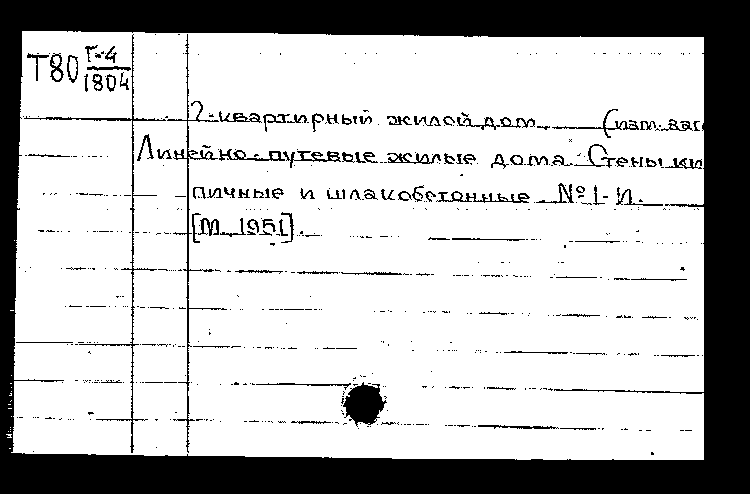 Т80 Г-4
1804
2-квартирный жилой дом. (изм. заг
Линейно-путевые жилые дома. Стены ки
пичные и шлакобетонные. № I-И.
[М. 1951].